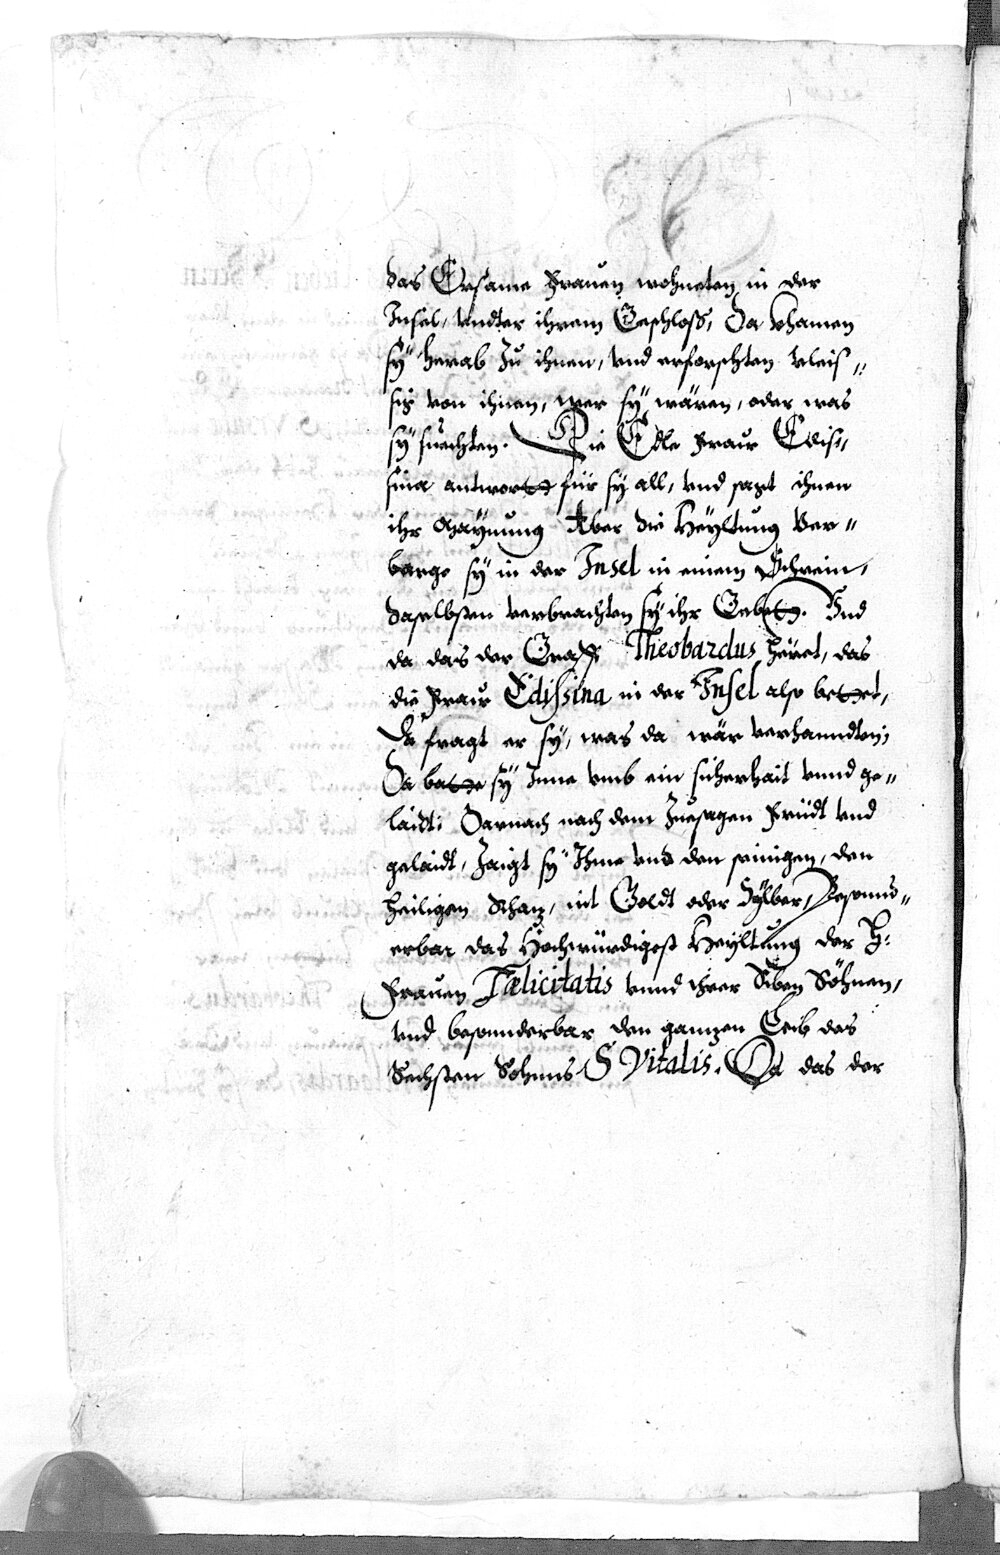 das Ersame Frauen wohneten in der
Insel, undter ihrem Geschloß, Da khamen
sÿ herab zu ihnen, und erforschten vleis„
sig von ihnen, wer sÿ wären, oder was
sÿ suechten. Die Edle Fraur Edis„
sina antwortt für sÿ all, und sagt ihnen
ihr Maÿnung Aber die Heÿltung Ver„
barge sÿ in der Insel in einem Schrein,
daselbsten verbrachten sÿ ihr Gebett. Und
da das der Graff Theobardus höret, das
die Fraur Edissina in der Insel also bettet,
Da fragt er sÿ, was da wär verhanndten;
Da batte sÿ Inne umb ein sicherhait unnd ge„
laidt; Darnach nach dem Zuesagen Früdt und
gelaidt, Zaigt sÿ Ihme und den seinigen, den
heiligen Schatz, nit Goldt oder Sÿlber, Besonnd„
erbar das Hochwürdigest Heÿltung der H:
Frauen Fœlicitatis unnd ihrer Siben Söhnen,
und besonnderbar den gantzen Leib des
Sechsten Sohnns S Vitalis. Da das der